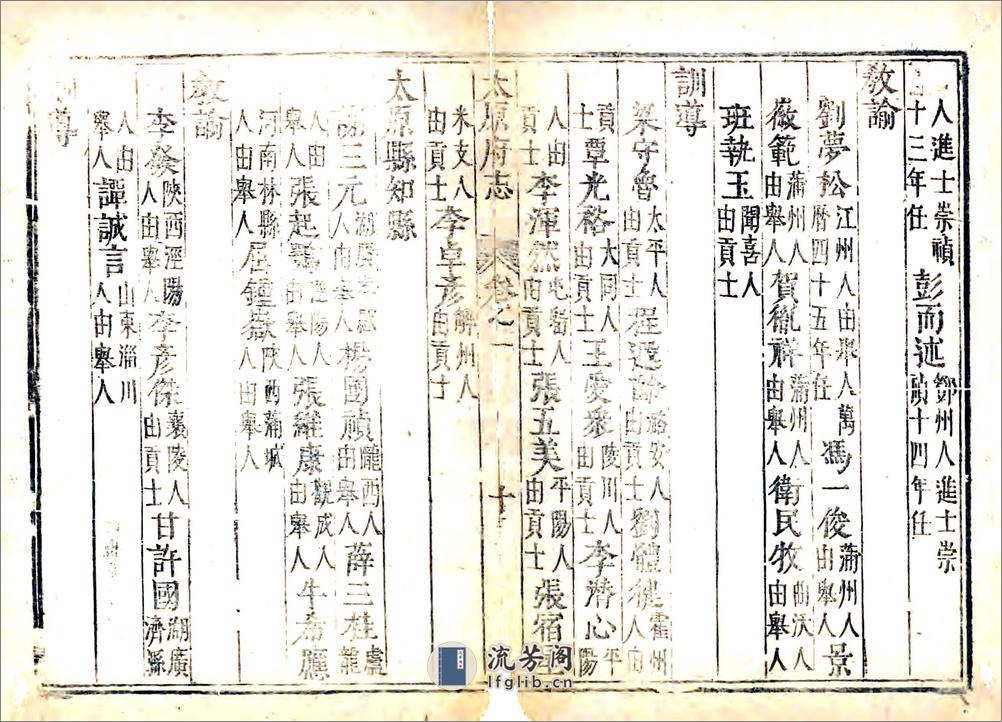 人進士崇禎十三年任彭而述鄧州人進士崇禎十四年任
教諭
劉夢松江州人由舉人萬曆四十五年任馮一俊蒲州人由舉人景
範蒲州人由舉人賀胤蒲州人由舉人衛民牧曲沃人由舉人
班執玉聞喜人由貢士
訓導
梁守魯太平人由貢士程選潞安人由貢士劉體健霍州人由
貢士覃光裕大同人由貢士王愛衆陵川人由貢士李濟心平陽
人由貢士李渾然屯留人由貢士張五美平陽人由貢士張宿
太原府志 卷之一 十
人由貢士李卓彦解州人由貢士
太原縣知縣
謝三元湖廣人由舉人楊國禎隴西人由舉人薛三桂盧龍
人由舉人張起鶚涇陽人由舉人張維康觀城人由舉人牛希鷹
河南林縣人由舉人屈鍾嶽陝西蒲城人由舉人
教諭
李發陝西涇陽人由舉人李彦傑襄陵人由貢士甘許國湖廣濟縣
人由舉人譚誠言山東淄川人由舉人
訓導
流芳阁
lfglib.cn